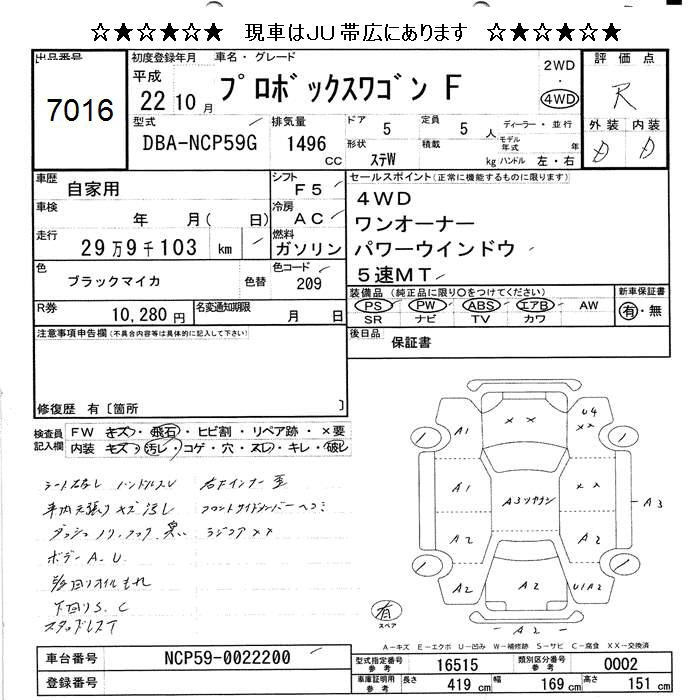 ☆★☆★☆★ 現車はJU帯広にあります ☆★☆★☆★
出品番号 初度登録年月 車名・グレード 2WD・4WD 評価点
7016 平成22 10月 プロボックスワゴン F R
型式 排気量 ドア 定員 ディーラー・並行 外装 内装
DBA-NCP59G 1496 cc 5 5人 モデル年式 年 D D
形状 ステW 積載 kg ハンドル 左・右
車歴 自家用 シフト F5 セールスポイント(正常に機能するものに限ります)
車検 年 月( 日) 冷房 AC 4WD
走行 29万9千103 km 燃料 ガソリン ワンオーナー
パワーウインドウ
色 ブラックマイカ 色替 色コード 209 5速MT
R券 10,280円 名変通知期限 月 日
装備品(純正品に限り○をつけてください) 新車保証書
PS PW ABS エアB AW 有・無
SR ナビ TV カワ
注意事項申告欄(不具合内容等は具体的に記入して下さい) 後日品 保証書
修復歴 有〔箇所 〕
検査員記入欄 FW キズ・飛石・ヒビ割・リペア跡・×要
内装 キズ・汚レ・コゲ・穴・スレ・キレ・破レ
ボデーA.U
下回りS.C
スタッドレスT
A1 ×× U4 ××
A1 A3 ××
A2 A2 A3
A2 A2 U1A2
A2
有 スペア
A-キズ E-エクボ U-凹み W-補修跡 S-サビ C-腐食 XX-交換済
車台番号 NCP59-0022200
登録番号
型式指定番号参考 16515 類別区分番号参考 0002
車庫証明用参考 長さ 419cm 幅 169cm 高さ 151cm